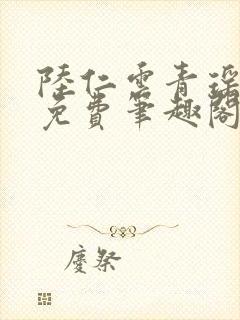 陸仁雲青瑶
免費筆趣閣
慶祭